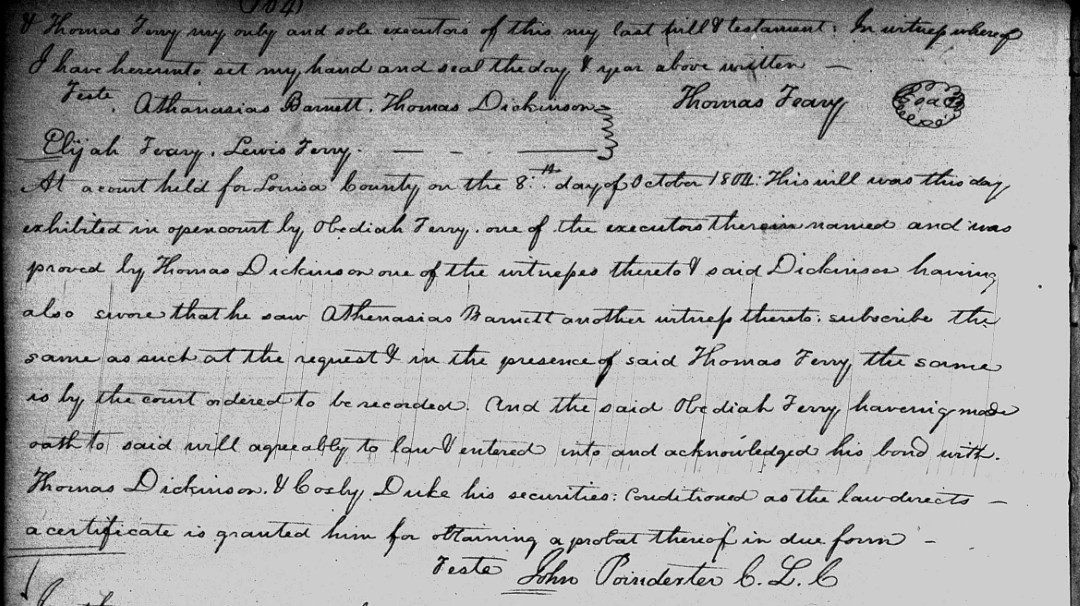 (104)
& Thomas Terry my only and sole executors of this my last will & testament: In witness whereof
I have hereunto set my hand and seal the day & year above written —
Teste Athanasias Barnett. Thomas Dickinson Thomas Teary Seal
Elijah Teary. Lewis Terry. — - —
At a court held for Louisa County on the 8.th day of October 1804. This will was this day
exhibited in open court by Obediah Terry. one of the executors therein named and was
proved by Thomas Dickinson one of the witnesses thereto & said Dickinson having
also swore that he saw Athenasias Barnett another witness thereto: subscribe the
same as such at the request & in the presence of said Thomas Terry the same
is by the court ordered to be recorded. And the said Obediah Terry havering made
oath to said will agreeably to law & entered into and acknowledged his bond with.
Thomas Dickinson. & Cosby Duke his securities: Conditioned as the law directs —
a certificate is granted him for obtaining a probat thereof in due form -
Teste John Poindexter C. L. C